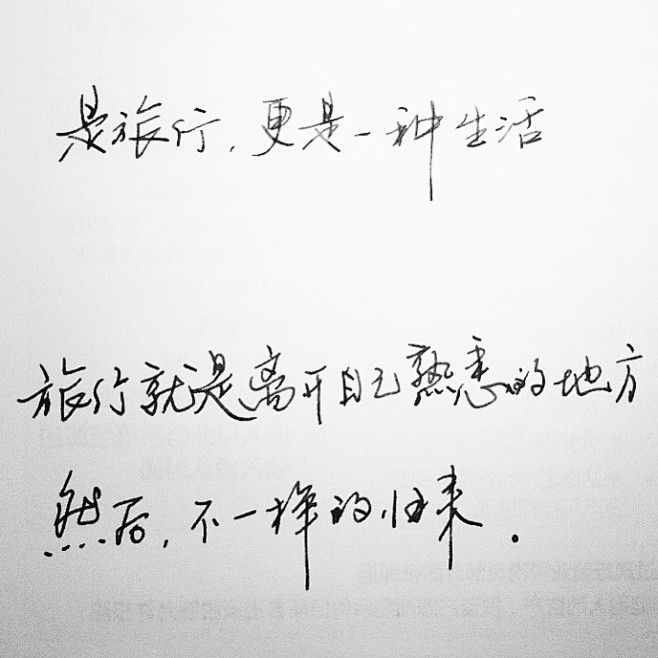 是旅行,更是一种生活
旅行就是离开自己熟悉的地方
然后,不一样的归来.